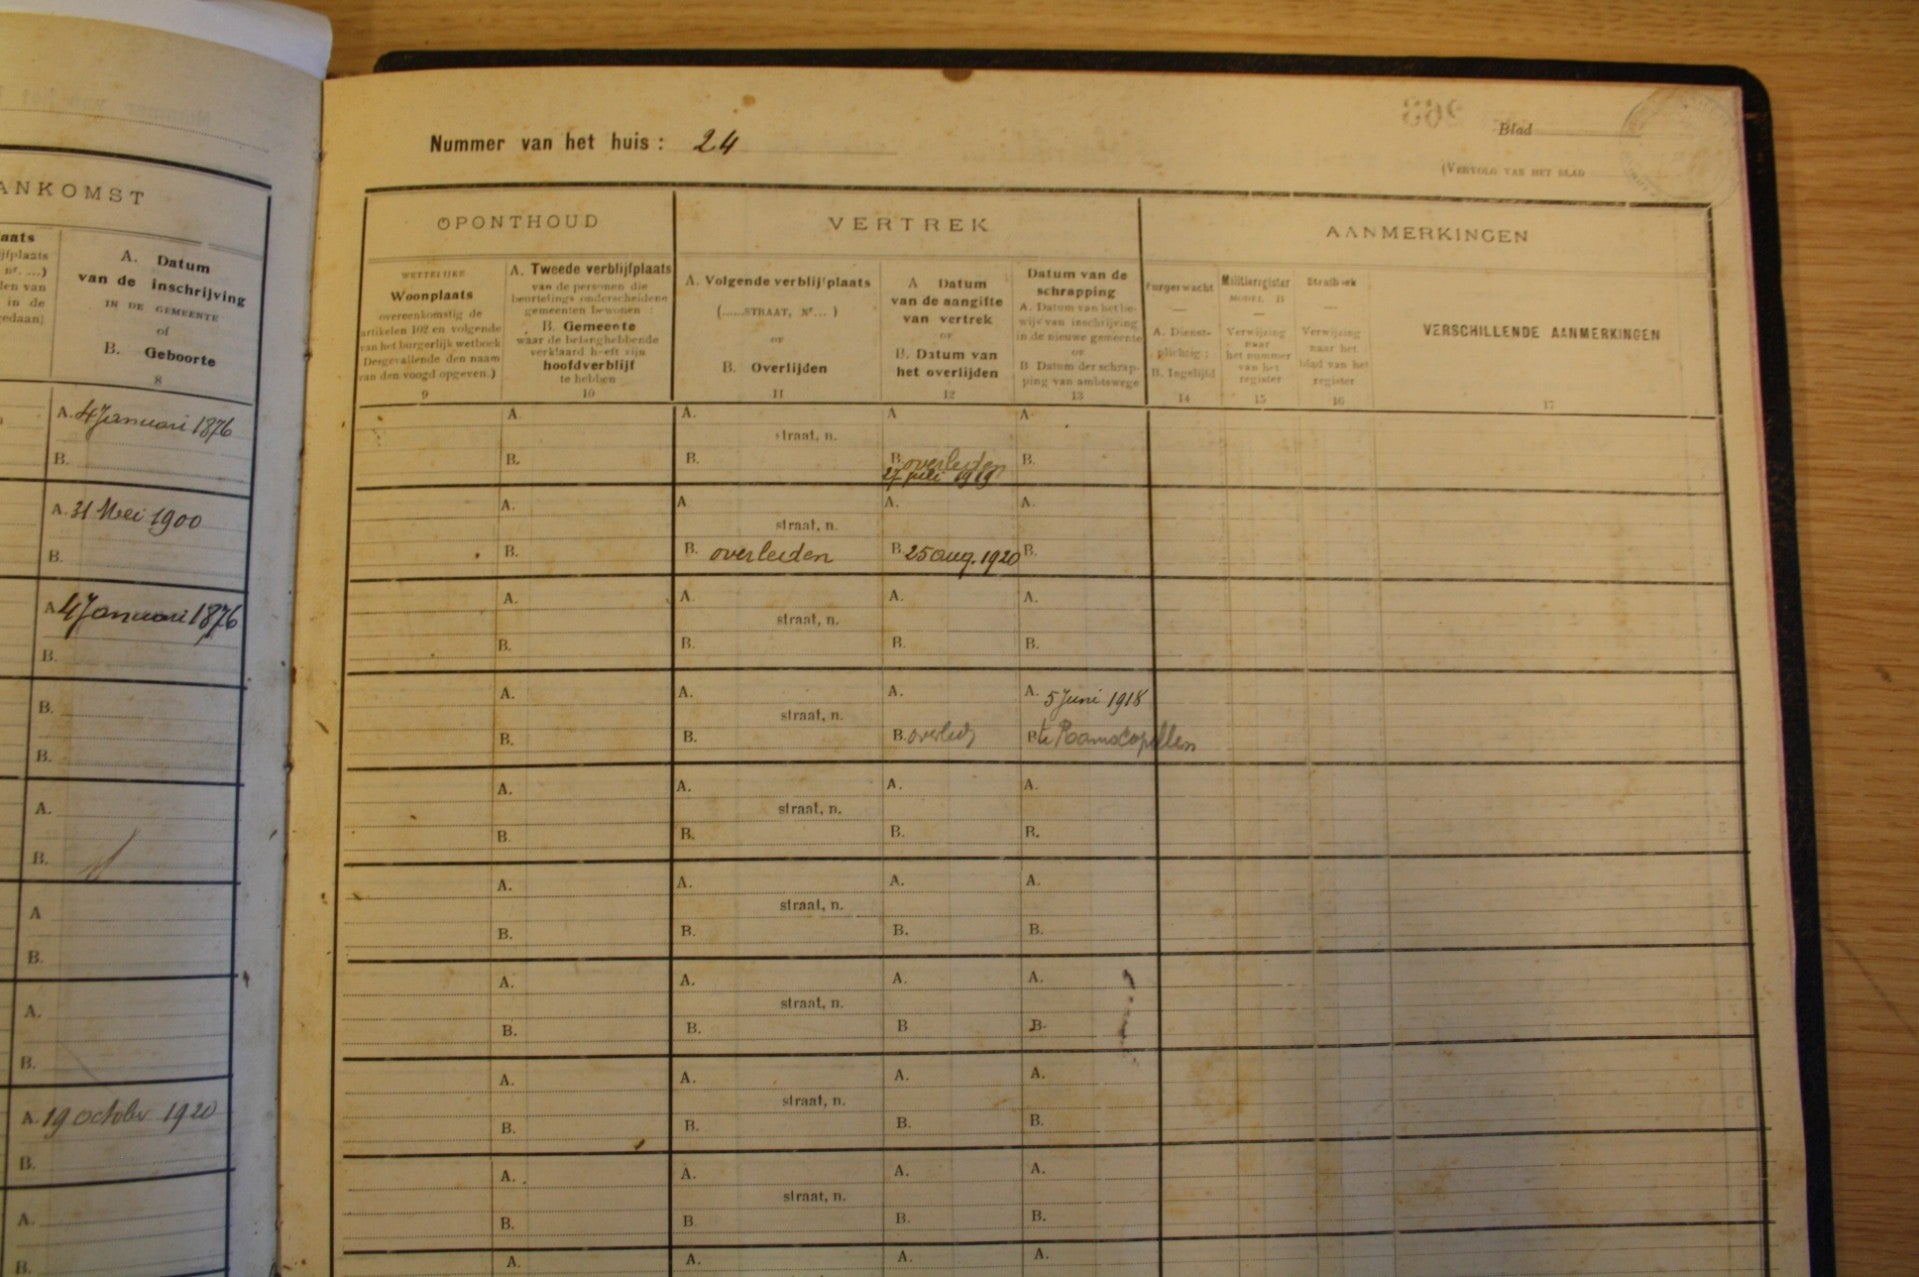 ANKOMST
laats
ijfplaats
nr. ...)
den van
in de
gedaan)
A. Datum
van de inschrijving
IN DE GEMEENTE
of
B. Geboorte
8
A. 4 Januari 1876
B.
A. 31 Mei 1900
B.
A 4 Januari 1876
B.
B.
B.
A.
B.
A
B.
A.
B.
A. 19 october 1920
B.
A.
B.
Nummer van het huis : 24
263
Blad
(VERVOLG VAN HET BLAD
OPONTHOUD
VERTREK
AANMERKINGEN
WETTELIJKE
Woonplaats
overeenkomstig de
artikelen 102 en volgende
van het burgerlijk wetboek
Desgevallende den naam
van den voogd opgeven.)
9
A. Tweede verblijfplaats
van de personen die
beurtelings onderscheidene
gemeenten bewonen :
B. Gemeente
waar de belanghebbende
verklaard heeft zijn
hoofdverblijf
te hebben
10
A. Volgende verblijfplaats
(......STRAAT, Nr... )
OF
B. Overlijden
11
A Datum
van de aangifte
van vertrek
OF
B. Datum van
het overlijden
12
Datum van de
schrapping
A. Datum van het be-
wijs van inschrijving
in de nieuwe gemeente
OF
B Datum der schrap-
ping van ambtswege
13
Burgerwacht
—
A. Dienst-
plichtig ;
B. Ingelijfd
14
Militieregister
MODEL B
—
Verwijzing
naar
het nummer
van het
register
15
Strafboek
—
Verwijzing
naar het
blad van het
register
16
VERSCHILLENDE AANMERKINGEN
17
A. A. A A.
straat, n.
B. B. B. overleden B.
27 juli 1919
A. A A. A.
straat, n.
B. B. overleden B 25 aug. 1920 B.
A. A. A. A.
straat, n.
B. B. B. B.
A. A. A. A. 5 Juni 1918
straat, n.
B. B. B. overled B. te Ramscapellen
A. A. A. A.
straat, n.
B. B. B. B.
A. A. A. A.
straat, n.
B. B. B. B.
A. A. A. A.
straat, n.
B. B. B B.
A. A. A. A.
straat, n.
B. B. B. B.
A. A. A. A.
straat, n.
B. B B. B.
A. A. A. A.